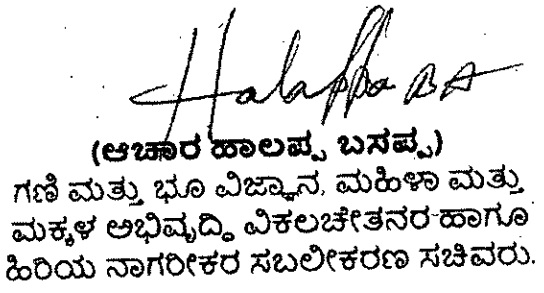 Halappa BA
(ಆಚಾರ ಹಾಲಪ್ಪ ಬಸಪ್ಪ)
ಗಣಿ ಮತ್ತು ಭೂ ವಿಜ್ಞಾನ, ಮಹಿಳಾ ಮತ್ತು
ಮಕ್ಕಳ ಅಭಿವೃದ್ಧಿ ವಿಕಲಚೇತನರ ಹಾಗೂ
ಹಿರಿಯ ನಾಗರೀಕರ ಸಬಲೀಕರಣ ಸಚಿವರು.